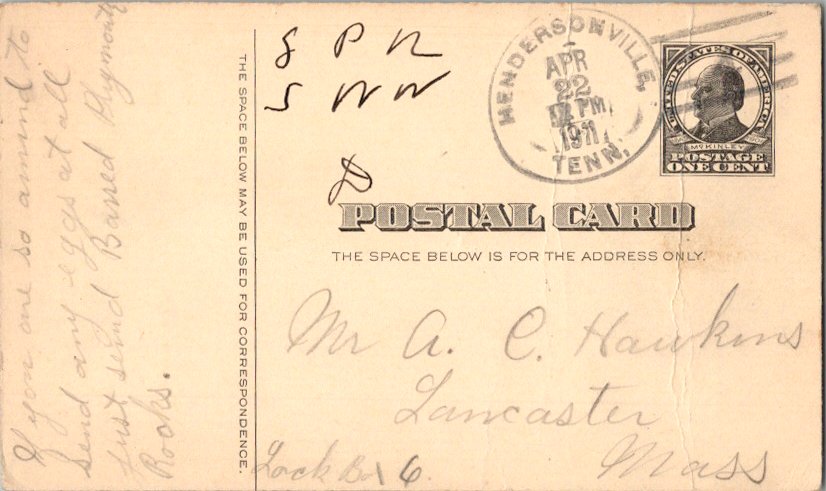 If you are so amind to
send any eggs at all
just send Barred Plymouth
Rocks.
THE SPACE BELOW MAY BE USED FOR CORRESPONDENCE.
S P R
S W W
D
HENDERSONVILLE,
APR
22
PM
1911
TENN.
UNITED STATES OF AMERICA
McKINLEY
POSTAGE
ONE CENT
POSTAL CARD
THE SPACE BELOW IS FOR THE ADDRESS ONLY.
Mr A. C. Hawkins
Lancaster
Mass
Lock Box 6.